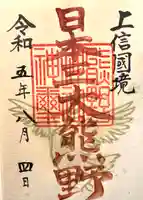 上信國境
日本三大熊野
令和五年八月四日